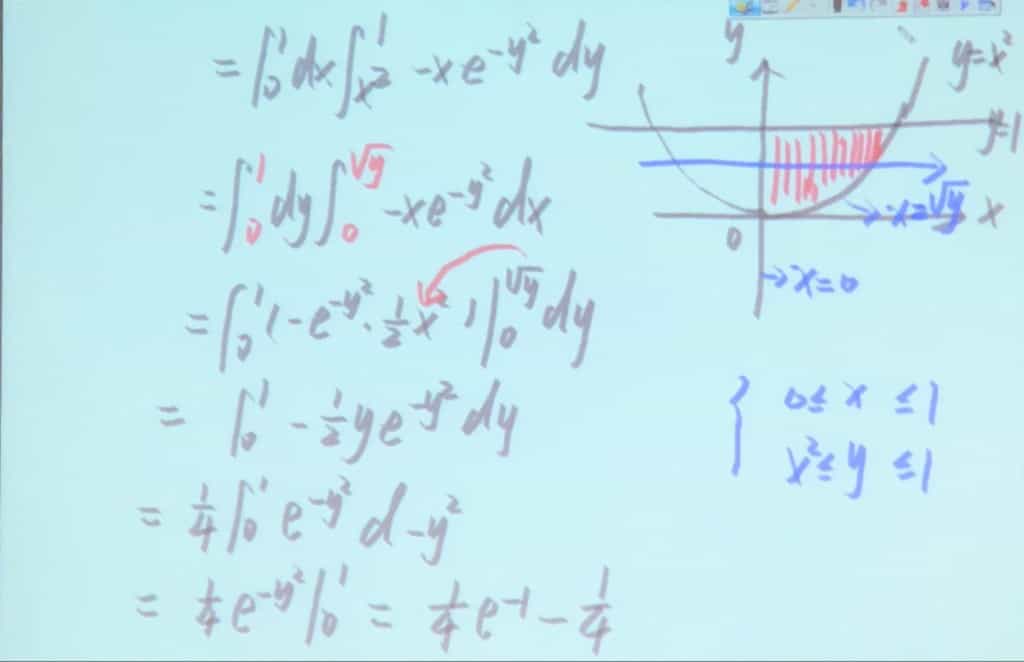 = ∫₀¹ dx ∫_{x²}^{1} -x e^{-y²} dy
= ∫₀¹ dy ∫₀^{√y} -x e^{-y²} dx
= ∫₀¹ ( -e^{-y²} · ½ x² ) |₀^{√y} dy
= ∫₀¹ -½ y e^{-y²} dy
= ¼ ∫₀¹ e^{-y²} d -y²
= ¼ e^{-y²} |₀¹ = ¼ e^{-1} - ¼
y
y=x²
y=1
x=√y
x
0
x=0
{ 0 ≤ x ≤ 1
x² ≤ y ≤ 1